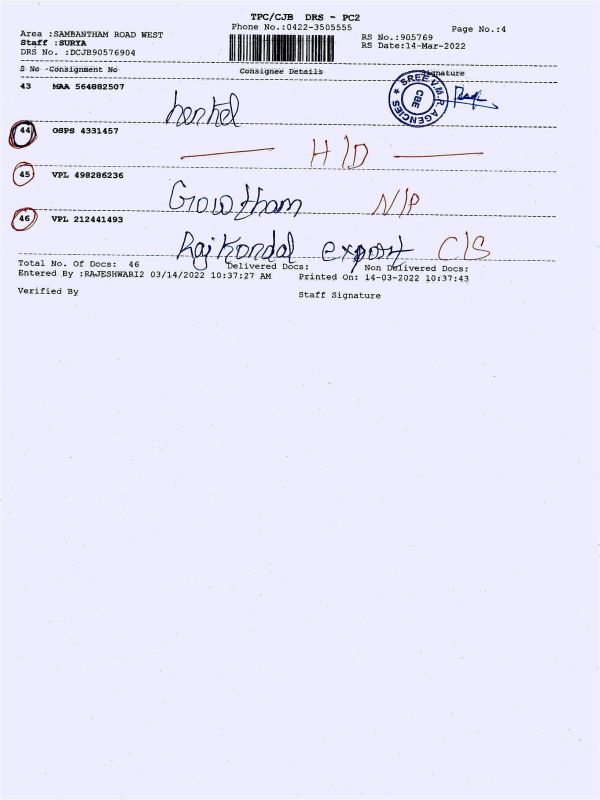 TPC/CJB DRS - PC2
Phone No.:0422-3505555
Page No.:4
Area :SAMBANTHAM ROAD WEST
RS No.:905769
Staff :SURYA
RS Date:14-Mar-2022
DRS No. :DCJB90576904
S No Consignment No Consignee Details Signature
43 MAA 564882507
henkel
SREE V.M.R. AGENCIES
CBE
44 OSPS 4331457
H/D
45 VPL 498286236
Gowtham N/P
46 VPL 212441493
Raj Kondal export C/S
Total No. Of Docs: 46 Delivered Docs: Non Delivered Docs:
Entered By :RAJESHWARI2 03/14/2022 10:37:27 AM Printed On: 14-03-2022 10:37:43
Verified By Staff Signature